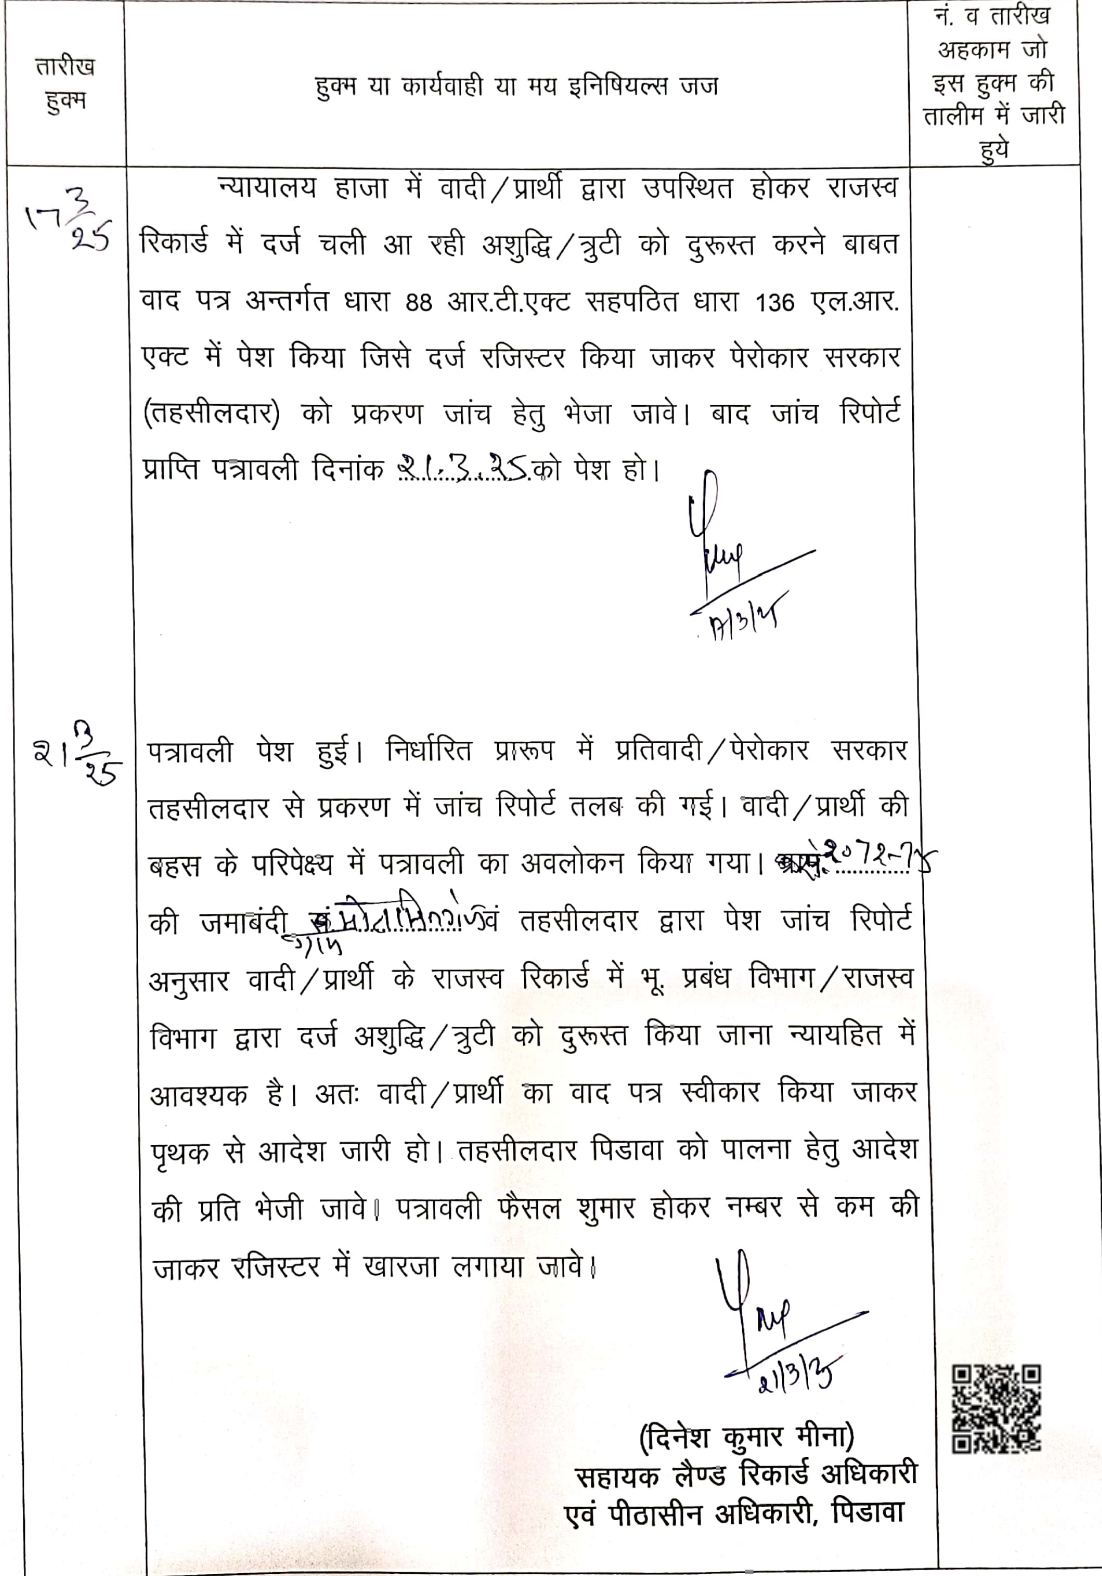 तारीख
हुक्म
हुक्म या कार्यवाही या मय इनिषियल्स जज
नं. व तारीख
अहकाम जो
इस हुक्म की
तालीम में जारी
हुये
17 3/25
न्यायालय हाजा में वादी/प्रार्थी द्वारा उपस्थित होकर राजस्व
रिकार्ड में दर्ज चली आ रही अशुद्धि/त्रुटी को दुरूस्त करने बाबत
वाद पत्र अन्तर्गत धारा 88 आर.टी.एक्ट सहपठित धारा 136 एल.आर.
एक्ट में पेश किया जिसे दर्ज रजिस्टर किया जाकर पेरोकार सरकार
(तहसीलदार) को प्रकरण जांच हेतु भेजा जावे। बाद जांच रिपोर्ट
प्राप्ति पत्रावली दिनांक 21.3.25 को पेश हो।
17/3/25
21 3/25
पत्रावली पेश हुई। निर्धारित प्रारूप में प्रतिवादी/पेरोकार सरकार
तहसीलदार से प्रकरण में जांच रिपोर्ट तलब की गई। वादी/प्रार्थी की
बहस के परिपेक्ष्य में पत्रावली का अवलोकन किया गया। 2072-75
की जमाबंदी ग्राम एवं तहसीलदार द्वारा पेश जांच रिपोर्ट
अनुसार वादी/प्रार्थी के राजस्व रिकार्ड में भू. प्रबंध विभाग/राजस्व
विभाग द्वारा दर्ज अशुद्धि/त्रुटी को दुरूस्त किया जाना न्यायहित में
आवश्यक है। अतः वादी/प्रार्थी का वाद पत्र स्वीकार किया जाकर
पृथक से आदेश जारी हो। तहसीलदार पिडावा को पालना हेतु आदेश
की प्रति भेजी जावे। पत्रावली फैसल शुमार होकर नम्बर से कम की
जाकर रजिस्टर में खारजा लगाया जावे।
21/3/25
(दिनेश कुमार मीना)
सहायक लैण्ड रिकार्ड अधिकारी
एवं पीठासीन अधिकारी, पिडावा